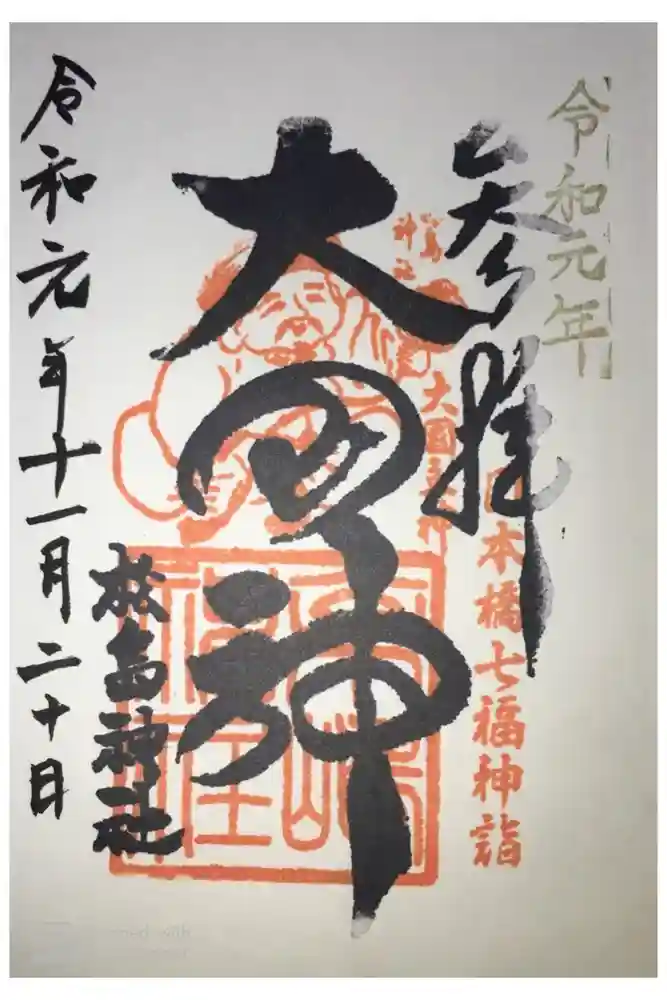 令和元年
参拝
日本橋七福神詣
大國主神
大国神
松島神社
令和元年十一月二十日